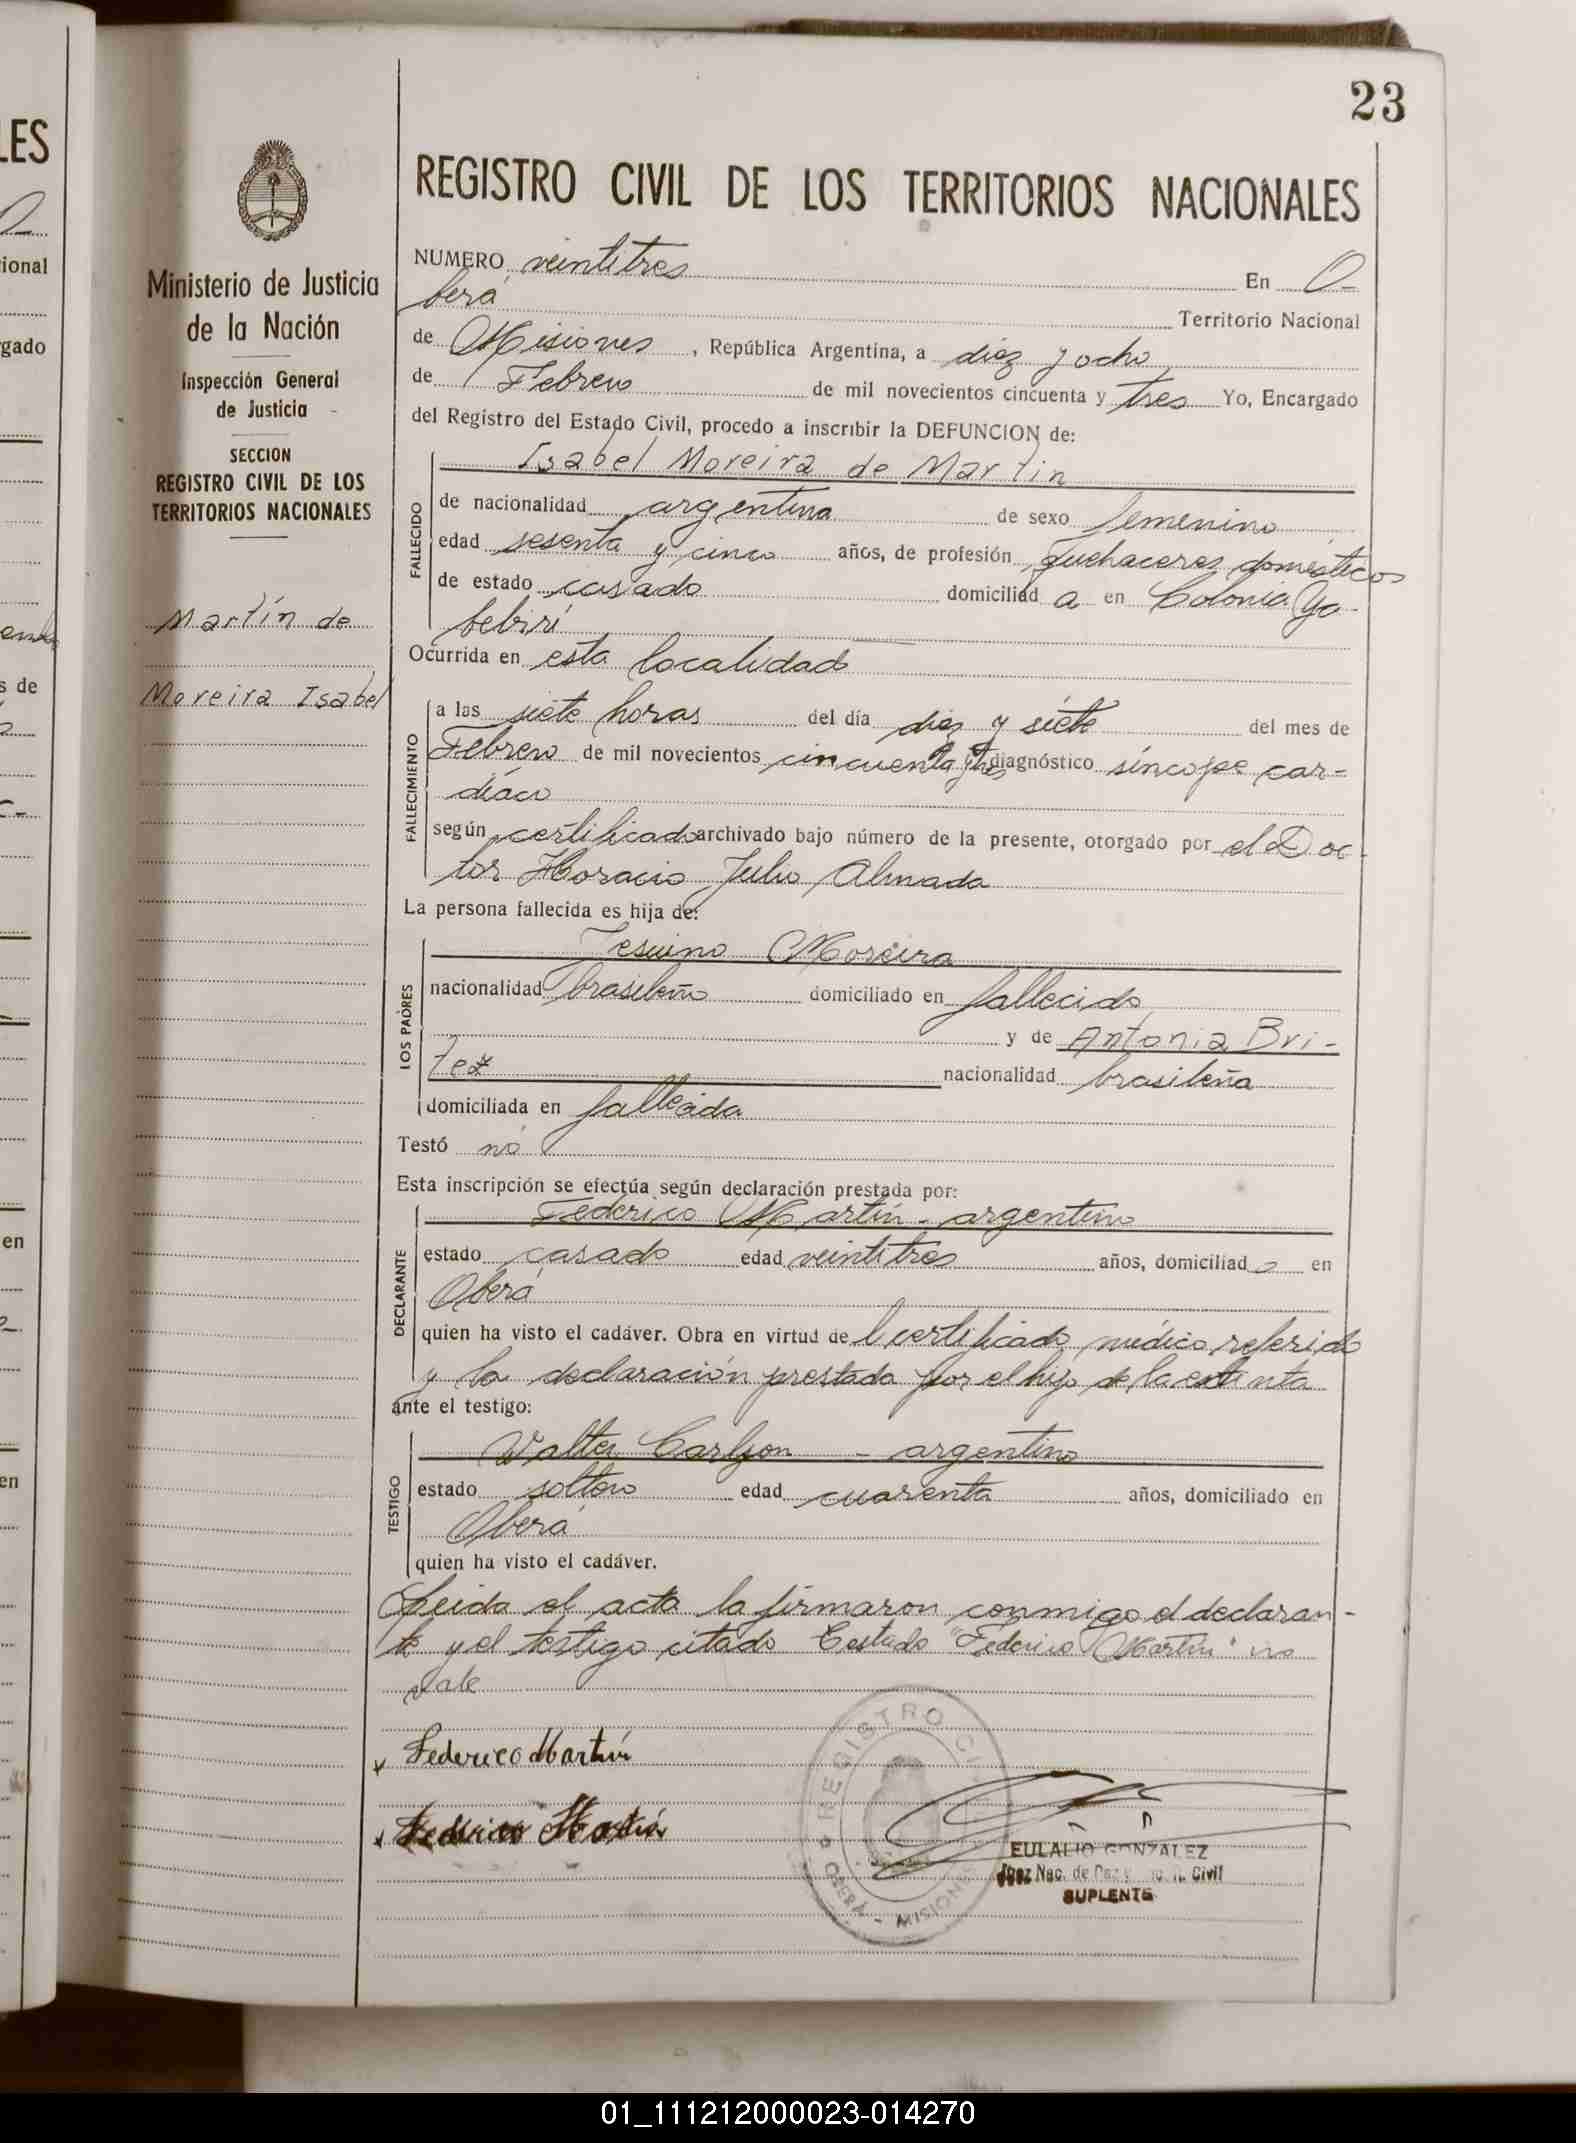 LES
ional
rgado
s de
en
en
23
Ministerio de Justicia
de la Nación
Inspección General
de Justicia
SECCION
REGISTRO CIVIL DE LOS
TERRITORIOS NACIONALES
Martín de
Moreira Isabel
REGISTRO CIVIL DE LOS TERRITORIOS NACIONALES
NUMERO veintitres En O-
berá Territorio Nacional
de Misiones, República Argentina, a diez y ocho
de Febrero de mil novecientos cincuenta y tres Yo, Encargado
del Registro del Estado Civil, procedo a inscribir la DEFUNCION de:
FALLECIDO
Isabel Moreira de Martin
de nacionalidad argentina de sexo femenino
edad sesenta y cinco años, de profesión quehaceres domésticos
de estado casado domiciliad a en Colonia Ya-
bebirí
Ocurrida en esta localidad
FALLECIMIENTO
a las siete horas del día diez y siete del mes de
Febrero de mil novecientos cincuenta y tres diagnóstico síncope car-
díaco
según certificado archivado bajo número de la presente, otorgado por el Doc-
tor Horacio Julio Almada
La persona fallecida es hija de:
LOS PADRES
Jesuino Moreira
nacionalidad brasileño domiciliado en fallecido
y de Antonia Bri-
tez nacionalidad brasileña
domiciliada en fallecida
Testó no
Esta inscripción se efectúa según declaración prestada por:
DECLARANTE
Federico Martín - argentino
estado casado edad veintitres años, domiciliad o en
Oberá
quien ha visto el cadáver. Obra en virtud de l certificado médico referido
y la declaración prestada por el hijo de la extinta
ante el testigo:
TESTIGO
Walter Carlson - argentino
estado soltero edad cuarenta años, domiciliado en
Oberá
quien ha visto el cadáver.
Leida el acta la firmaron conmigo el declaran-
te y el testigo citado Testado "Federico Martin" no
vale
Federico Martín
Federico Martín
REGISTRO CI
OBERÁ - MISIONES
EULALIO GONZALEZ
Juez Nac. de Paz y R. Civil
SUPLENTE
01_111212000023-014270